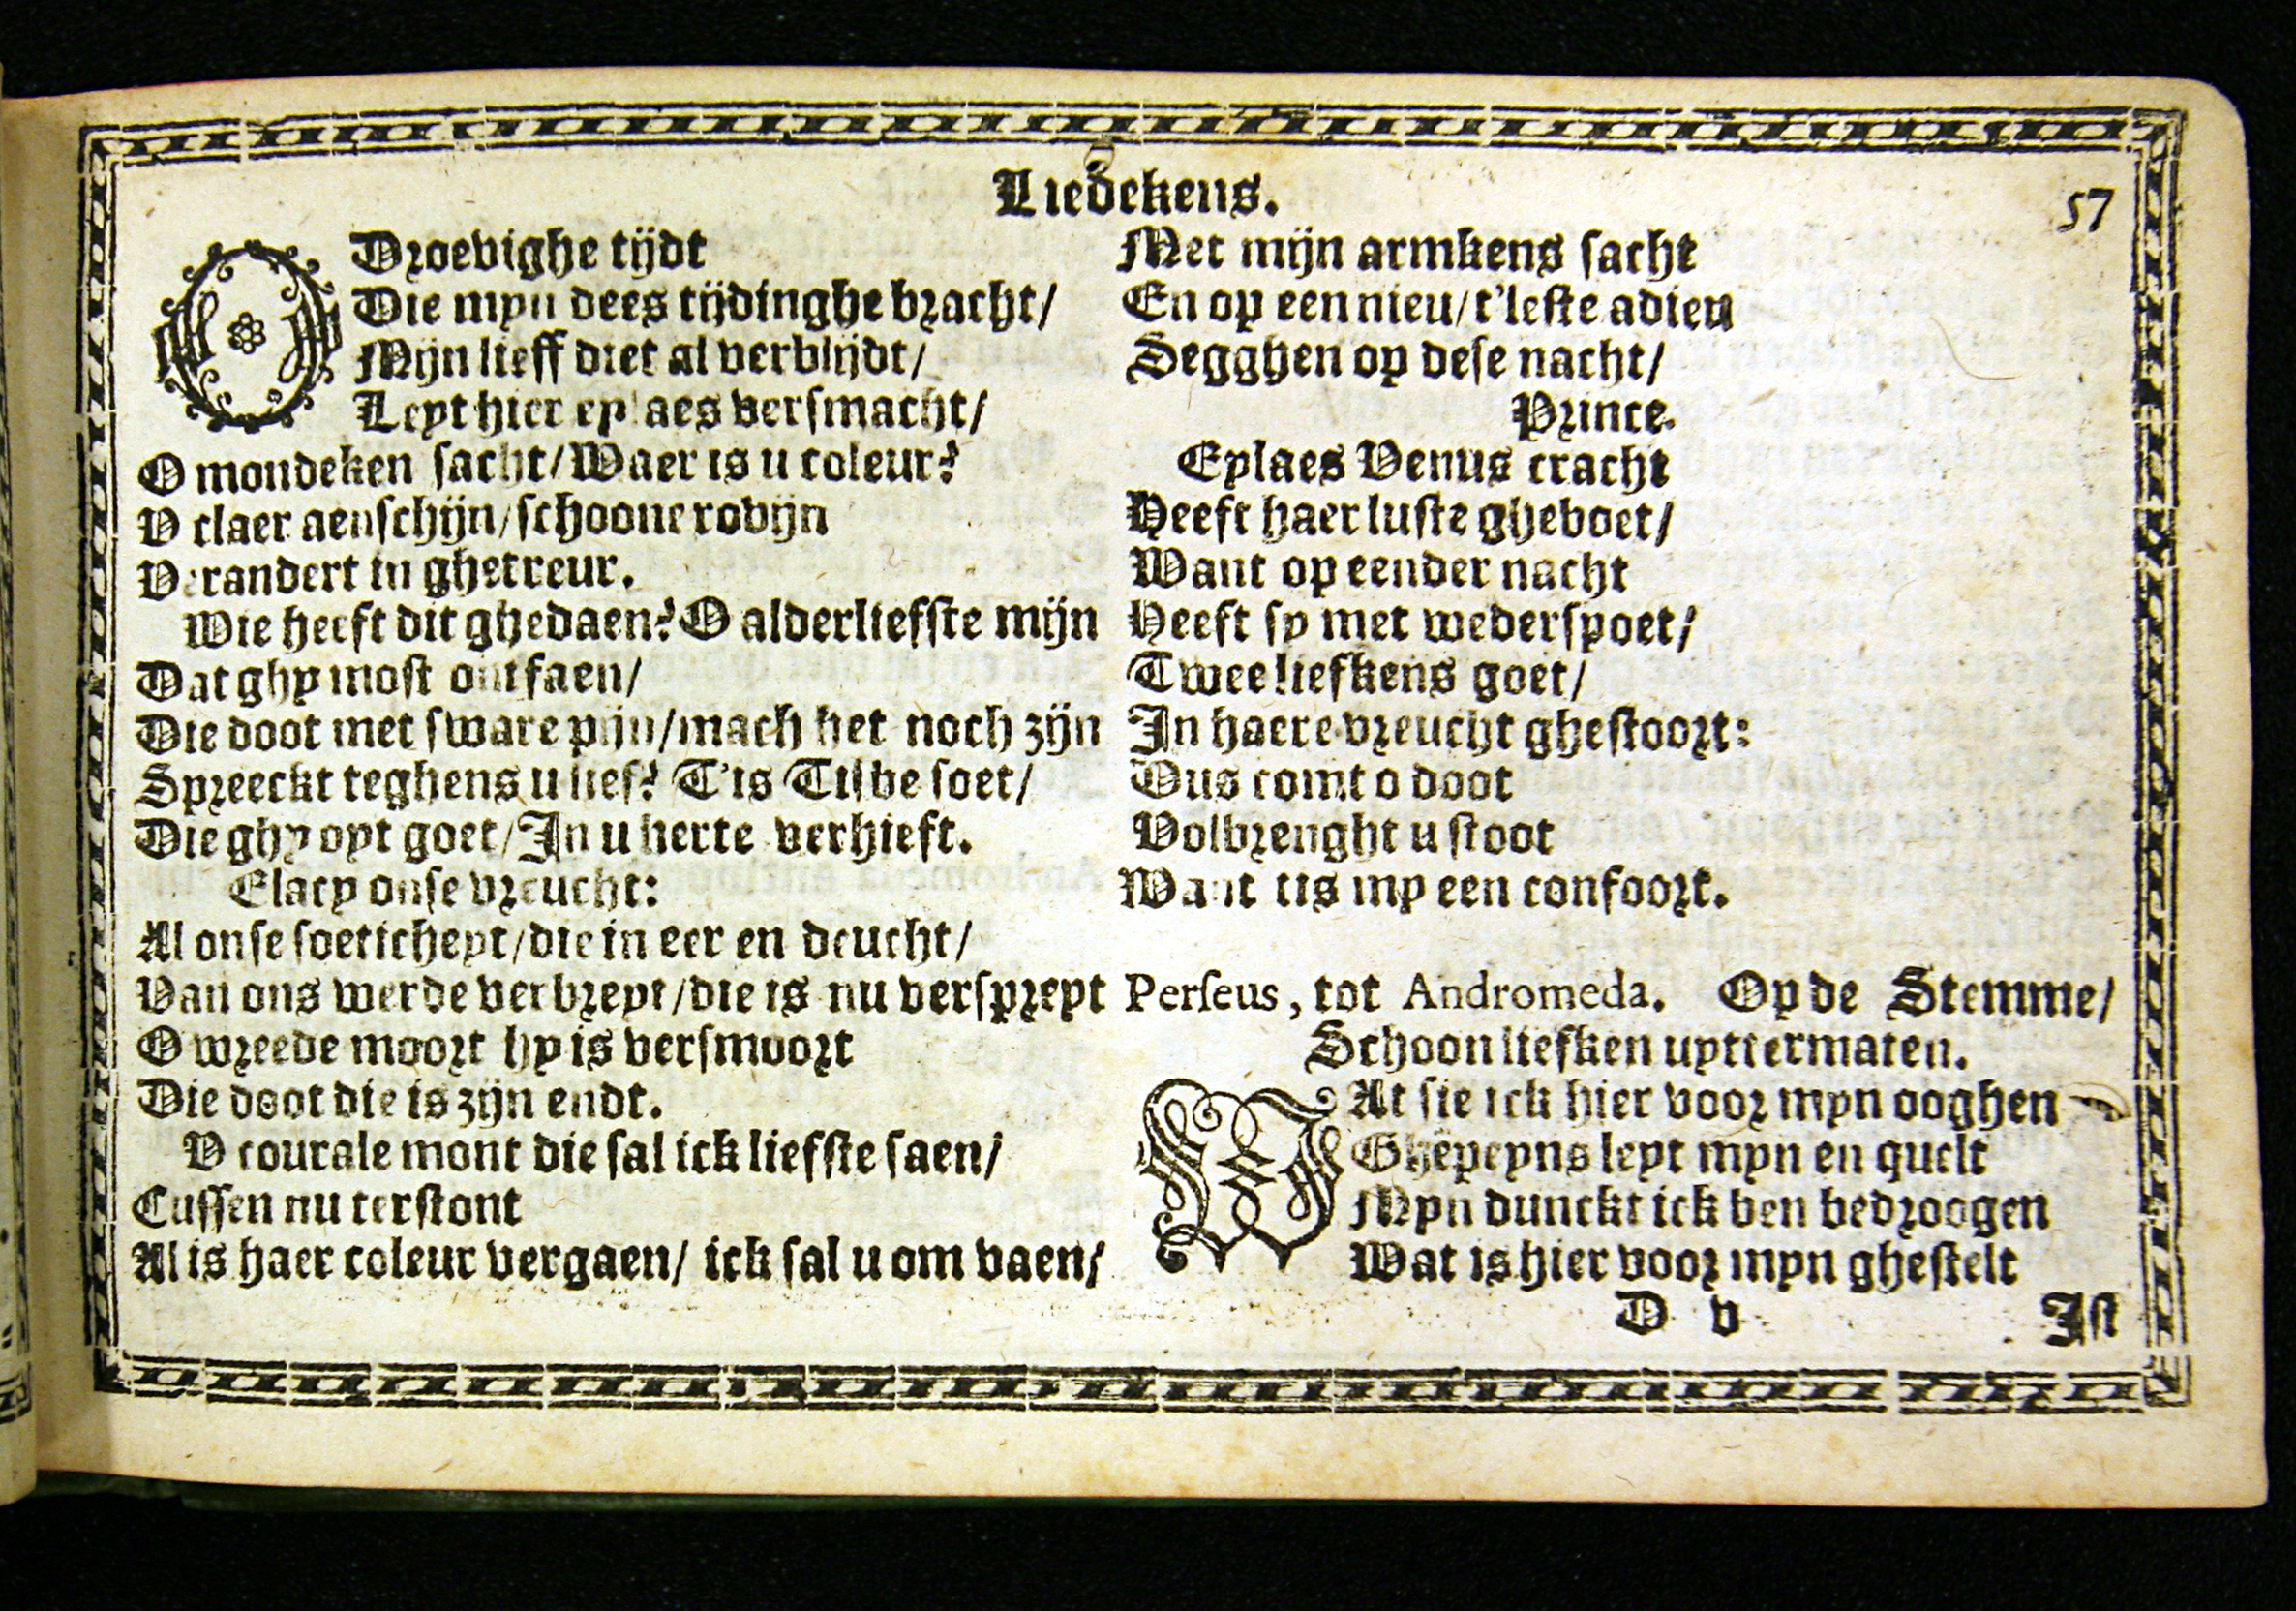 Liedekens.
57
O Droevighe tijdt
Die myn dees tijdinghe bracht/
Mijn lieff diet al verblijdt/
Leyt hier eylaes versmacht/
O mondeken sacht/ Waer is u coleur?
V claer aenschijn/ schoone robijn
Verandert in ghetreur.
Wie heeft dit ghedaen? O alderliefste mijn
Dat ghy most ontfaen/
Die doot met sware pijn/ mach het noch zijn
Spreeckt teghens u lief? T'is Tisbe soet/
Die ghy oyt goet/ In u herte verhieft.
Elacy onse vreucht:
Al onse soeticheyt/ die in eer en deucht/
Van ons werde verbreyt/ die is nu verspreyt
O wreede moort hy is versmoort
Die doot die is zijn endt.
V courale mont die sal ick liefste saen/
Cussen nu terstont
Al is haer coleur vergaen/ ick sal u om vaen/
Met mijn armkens sacht
En op een nieu/ t'leste adieu
Segghen op dese nacht/
Prince.
Eylaes Venus cracht
Heeft haer luste gheboet/
Want op eender nacht
Heeft sy met wederspoet/
Twee liefkens goet/
In haere vreucht ghestoort:
Dus comt o doot
Volbrenght u stoot
Want tis my een confoort.
Perseus, tot Andromeda. Op de Stemme/
Schoon liefken uyttermaten.
WAt sie ick hier voor myn ooghen
Ghepeyns leyt myn en quelt
Myn dunckt ick ben bedroogen
Wat is hier voor myn ghestelt
D v
Ist